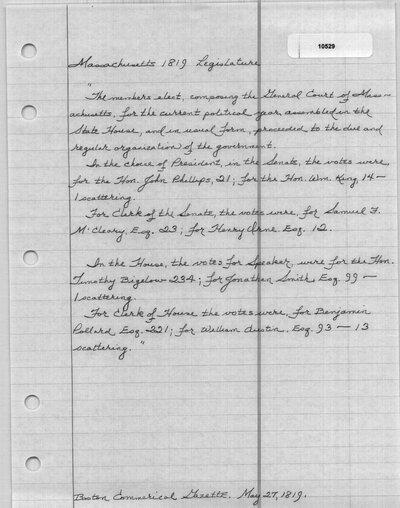 10529
Massachusetts 1819 Legislature
"The members elect, composing the General Court of Mass-
achusetts, for the current political year, assembled in the
State House, and in usual form, proceeded to the due and
regular organization of the government.
In the choice of President, in the Senate, the votes were,
for the Hon. John Phillips, 21; for the Hon. Wm. King, 14 —
1 scattering.
For Clerk of the Senate, the votes were, for Samuel F.
McCleary, Esq. 23; for Henry Orne, Esq. 12.
In the House, the votes for Speaker, were for the Hon.
Timothy Bigelow 234; for Jonathan Smith, Esq. 99 —
1 scattering.
For Clerk of House the votes were, for Benjamin
Pollard Esq. 221; for William Austin, Esq. 93 — 13
scattering."
Boston Commerical Gazette. May 27, 1819.